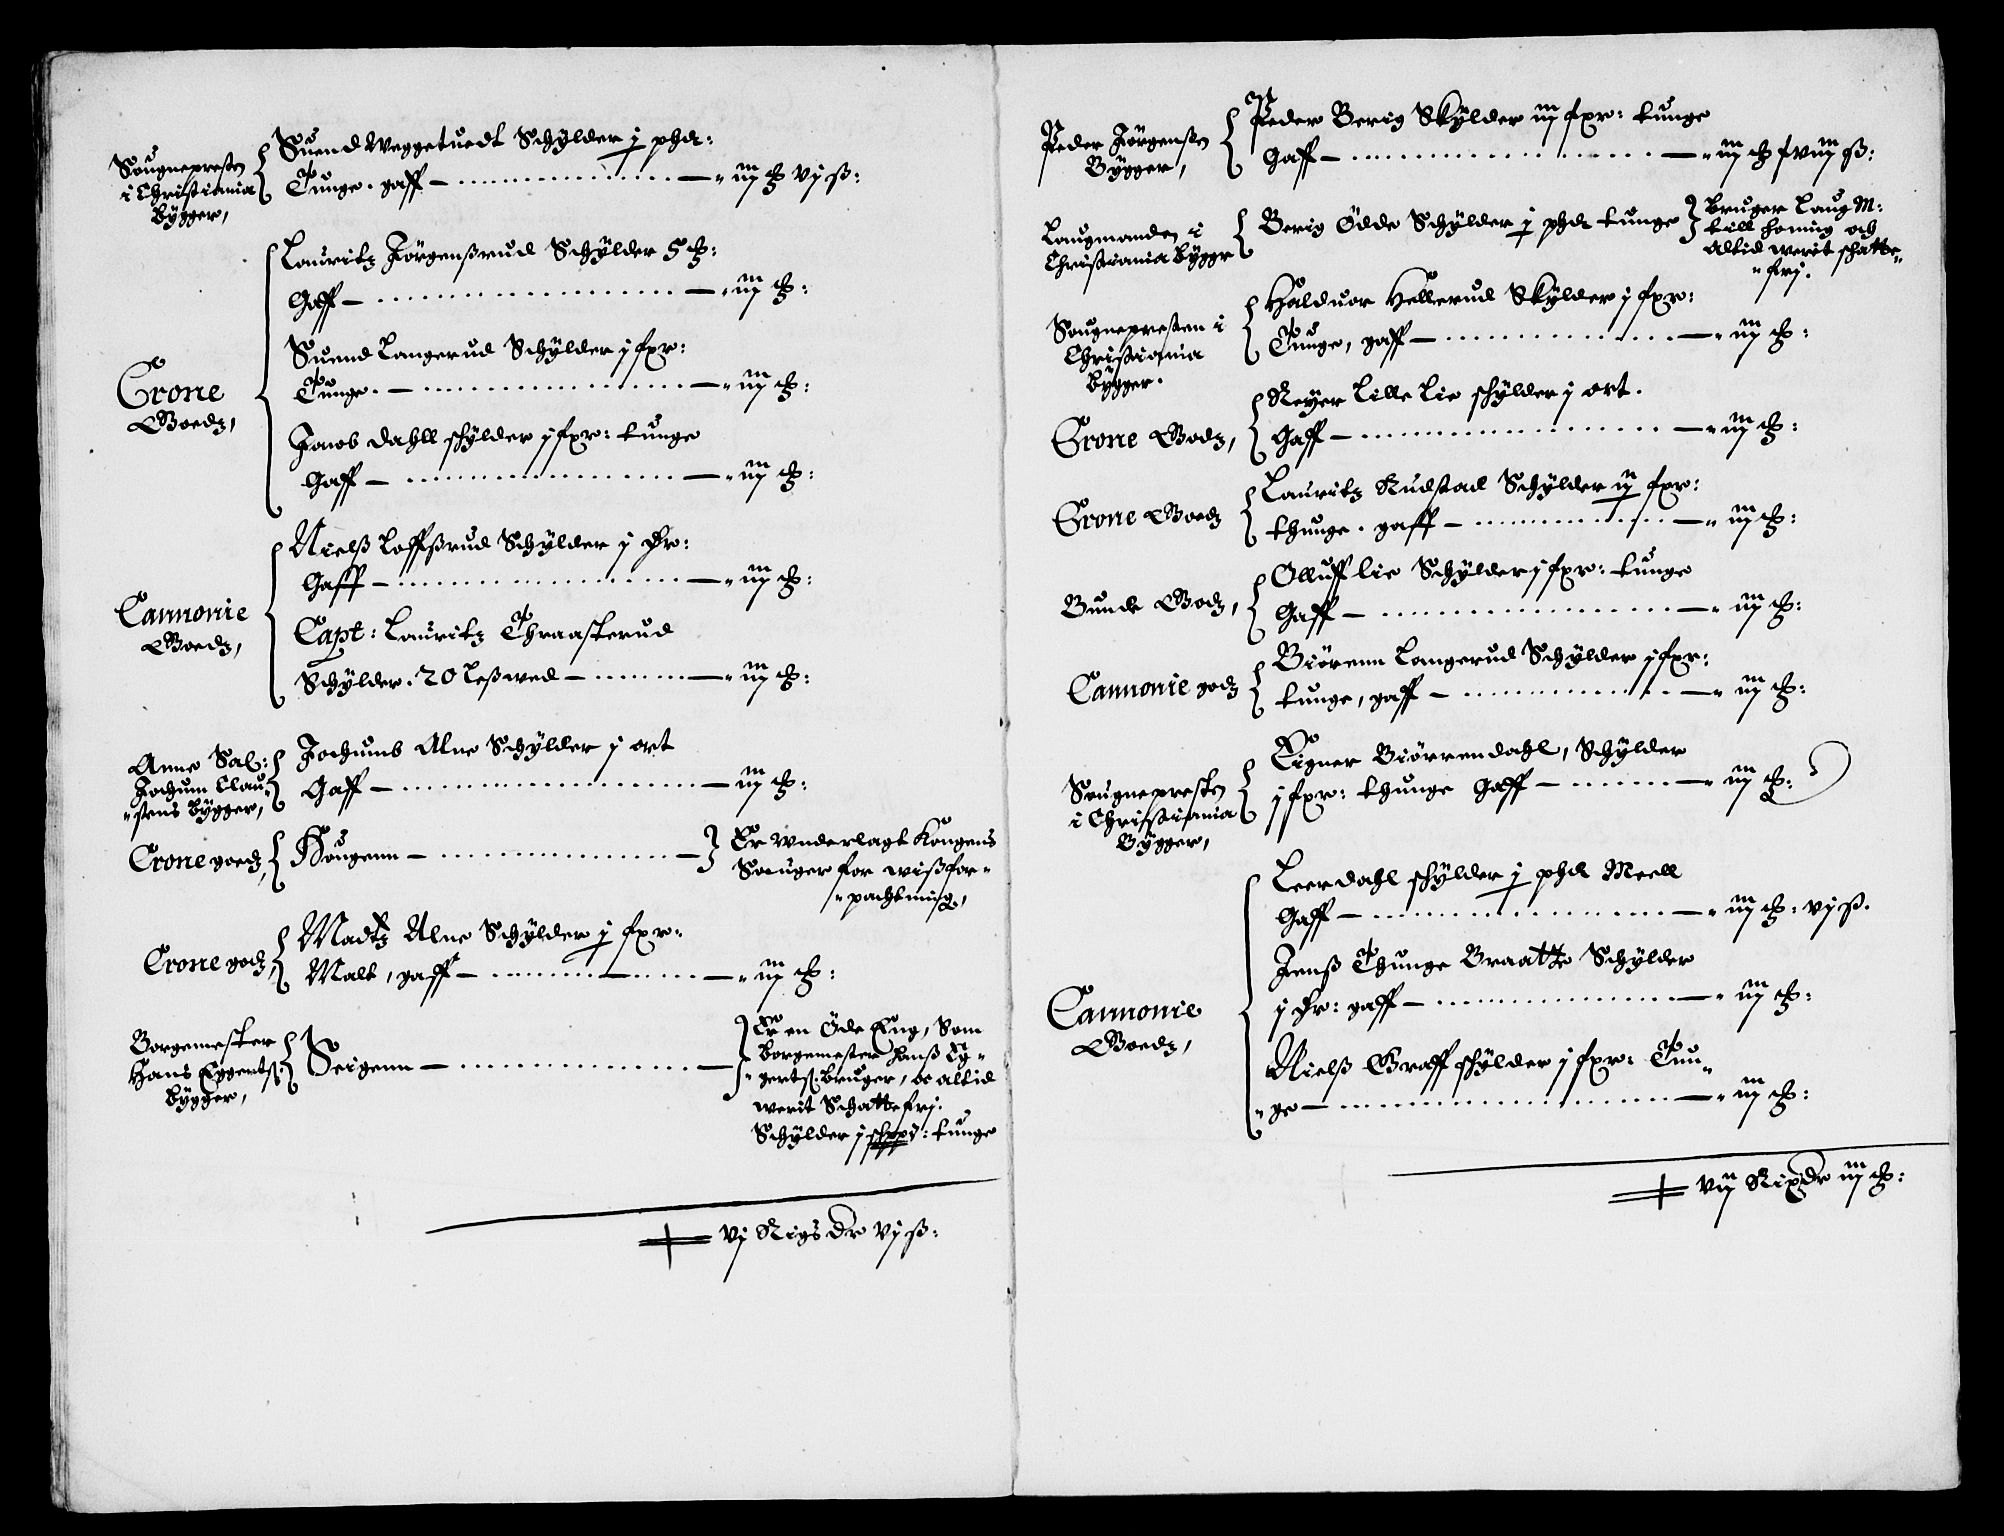 Sougnepresten
i Christiania
bÿgger,
Suend Weggetuedt Schÿlder j phd:
Tunge. gaff — iij ꝸ vj ß:
Crone
Goedz,
Lauritz Jörgenßrud Schÿlder 5 ꝸ:
Gaff — iij ꝸ:
Suend Langerud Schÿlder j fxr:
Tunge. — iij ꝸ:
Jacob Dahll schÿlder j fxr: tunge
Gaff — iij ꝸ:
Cannonie
Goedz,
Nielß Loffßrud Schÿlder j dr:
Gaff — iij ꝸ:
Capt: Lauritz Thraasterud
Schÿlder. 20 Leßwed — iij ꝸ:
Anne Sal:
Jochum Clau-
-sens bÿgger,
Jochumb Alne Schÿlder j ort
Gaff — iij ꝸ:
Crone goedz,
Hougenn —
Er Vnderlagt Kongens
Souger for wißfor-
-pachtning,
Crone godz,
Madtz Alne Schÿlder j fxr:
Malt, gaff — iij ꝸ:
Borgemester
Hans Eggertß:
bÿgger,
Teigenn —
Er en Öde Eng, Som
borgemester Hanß Eg-
-gertß: bruger, oc altid
werit Schatte frj.
Schÿlder j schpd: tunge
vj Rigs dr vj ß:
Peder Jörgensen
Bÿgger,
Peder Berig Skÿlder iij fxr: tunge
Gaff — iij ꝸ xviij ß:
Laugmanden i
Christiania bÿgger
Berig Ödde Schÿlder j phd tunge
bruger Laug M:
till höning och
Altid werit schatte-
-frj.
Sougnepresten i
Christiania
bÿgger.
Halduor Hellerud Skÿlder j fxr:
Tunge, gaff — iij ꝸ:
Crone Godz,
Reÿer Lille Lie schÿlder j ort.
Gaff — iij ꝸ:
Crone Goedz
Lauritz Rudstad Schÿlder ij fxr:
thunge. gaff — iij ꝸ:
Bunde Godz,
Olluff Lie Schÿlder j fxr: tunge
Gaff — iij ꝸ:
Cannonie godz
Biörenn Langerud Schÿlder j fxr:
tunge, gaff — iij ꝸ:
Sougnepresten
i Christiania
Bÿgger,
Eigner Biörrendahl, Schÿlder
j fxr: thunge Gaff — iij ꝸ:
Cannonie
Goedz,
Leerdahl schÿlder j phd Meell
Gaff — iij ꝸ: vj ß.
Jenß Thunge Braatte Schÿlder
j dr: gaff — iij ꝸ:
Nielß Graff schÿlder j fxr: Tun-
-ge — iij ꝸ:
vij Rixdr iij ꝸ: